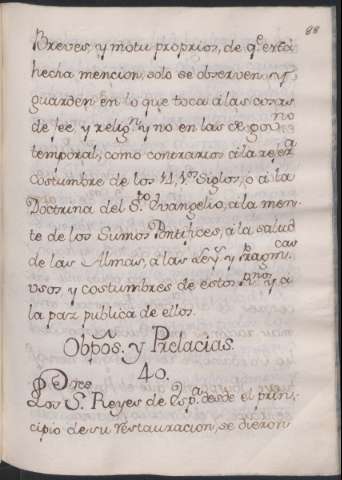 88
Breves, y motu proprios, de q.e está
hecha mencion, solo se observen, y
guarden en lo que toca á las cosas
de fee y relig.n y no en las de gov.no
temporal, como contrarios á la
costumbre de los 14, Siglos, ó á la
Doctrina del S.to Evangelio, á la men-
te de los Sumos Pontifices, á la salud
de las Almas, á las Ley.s y Pragm.cas
usos y costumbres de estos R.nos y á
la paz publica de ellos.
Obpõs. y Prelacias.
40.
Los S.res Reyes de Esp.a desde el prin-
cipio de su restauracion, se dieron